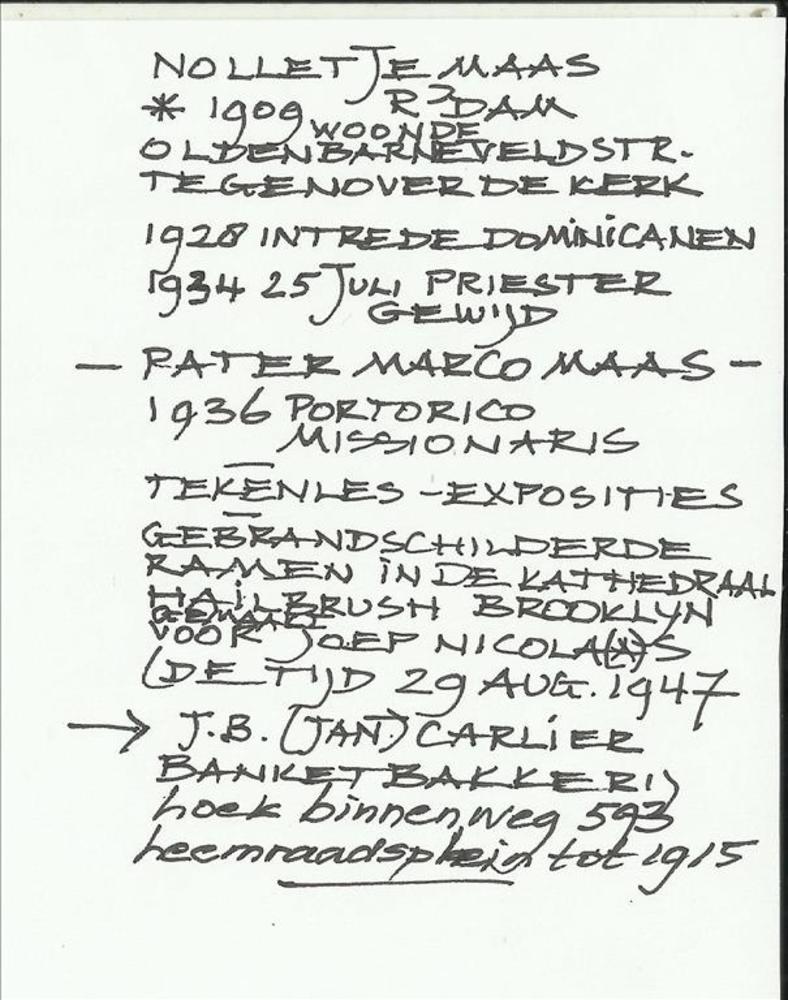 NOLLETJE MAAS
* 1909 R'DAM
WOONDE
OLDENBARNEVELDSTR.
TEGENOVER DE KERK
1928 INTREDE DOMINICANEN
1934 25 JULI PRIESTER
GEWIJD
— PATER MARCO MAAS —
1936 PORTORICO
MISSIONARIS
TEKENLES - EXPOSITIES
GEBRANDSCHILDERDE
RAMEN IN DE KATHEDRAAL
HAILBRUSH BROOKLYN
GEMAAKT
VOOR JOEP NICOLA(A)S
(DE TIJD 29 AUG. 1947
→ J.B. (JAN) CARLIER
BANKETBAKKERIJ
hoek binnenweg 593
heemraadsplein tot 1915